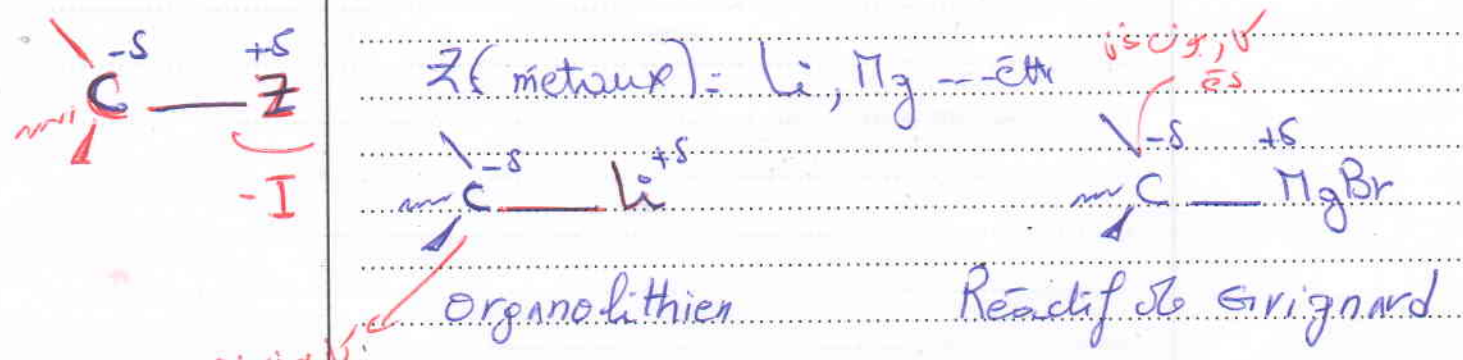 -δ +δ
C — Z
-I
Z (métaux) = Li, Mg ---
-δ +δ
C — Li
-δ +δ
C — MgBr
organolithien
Réactif de Grignard